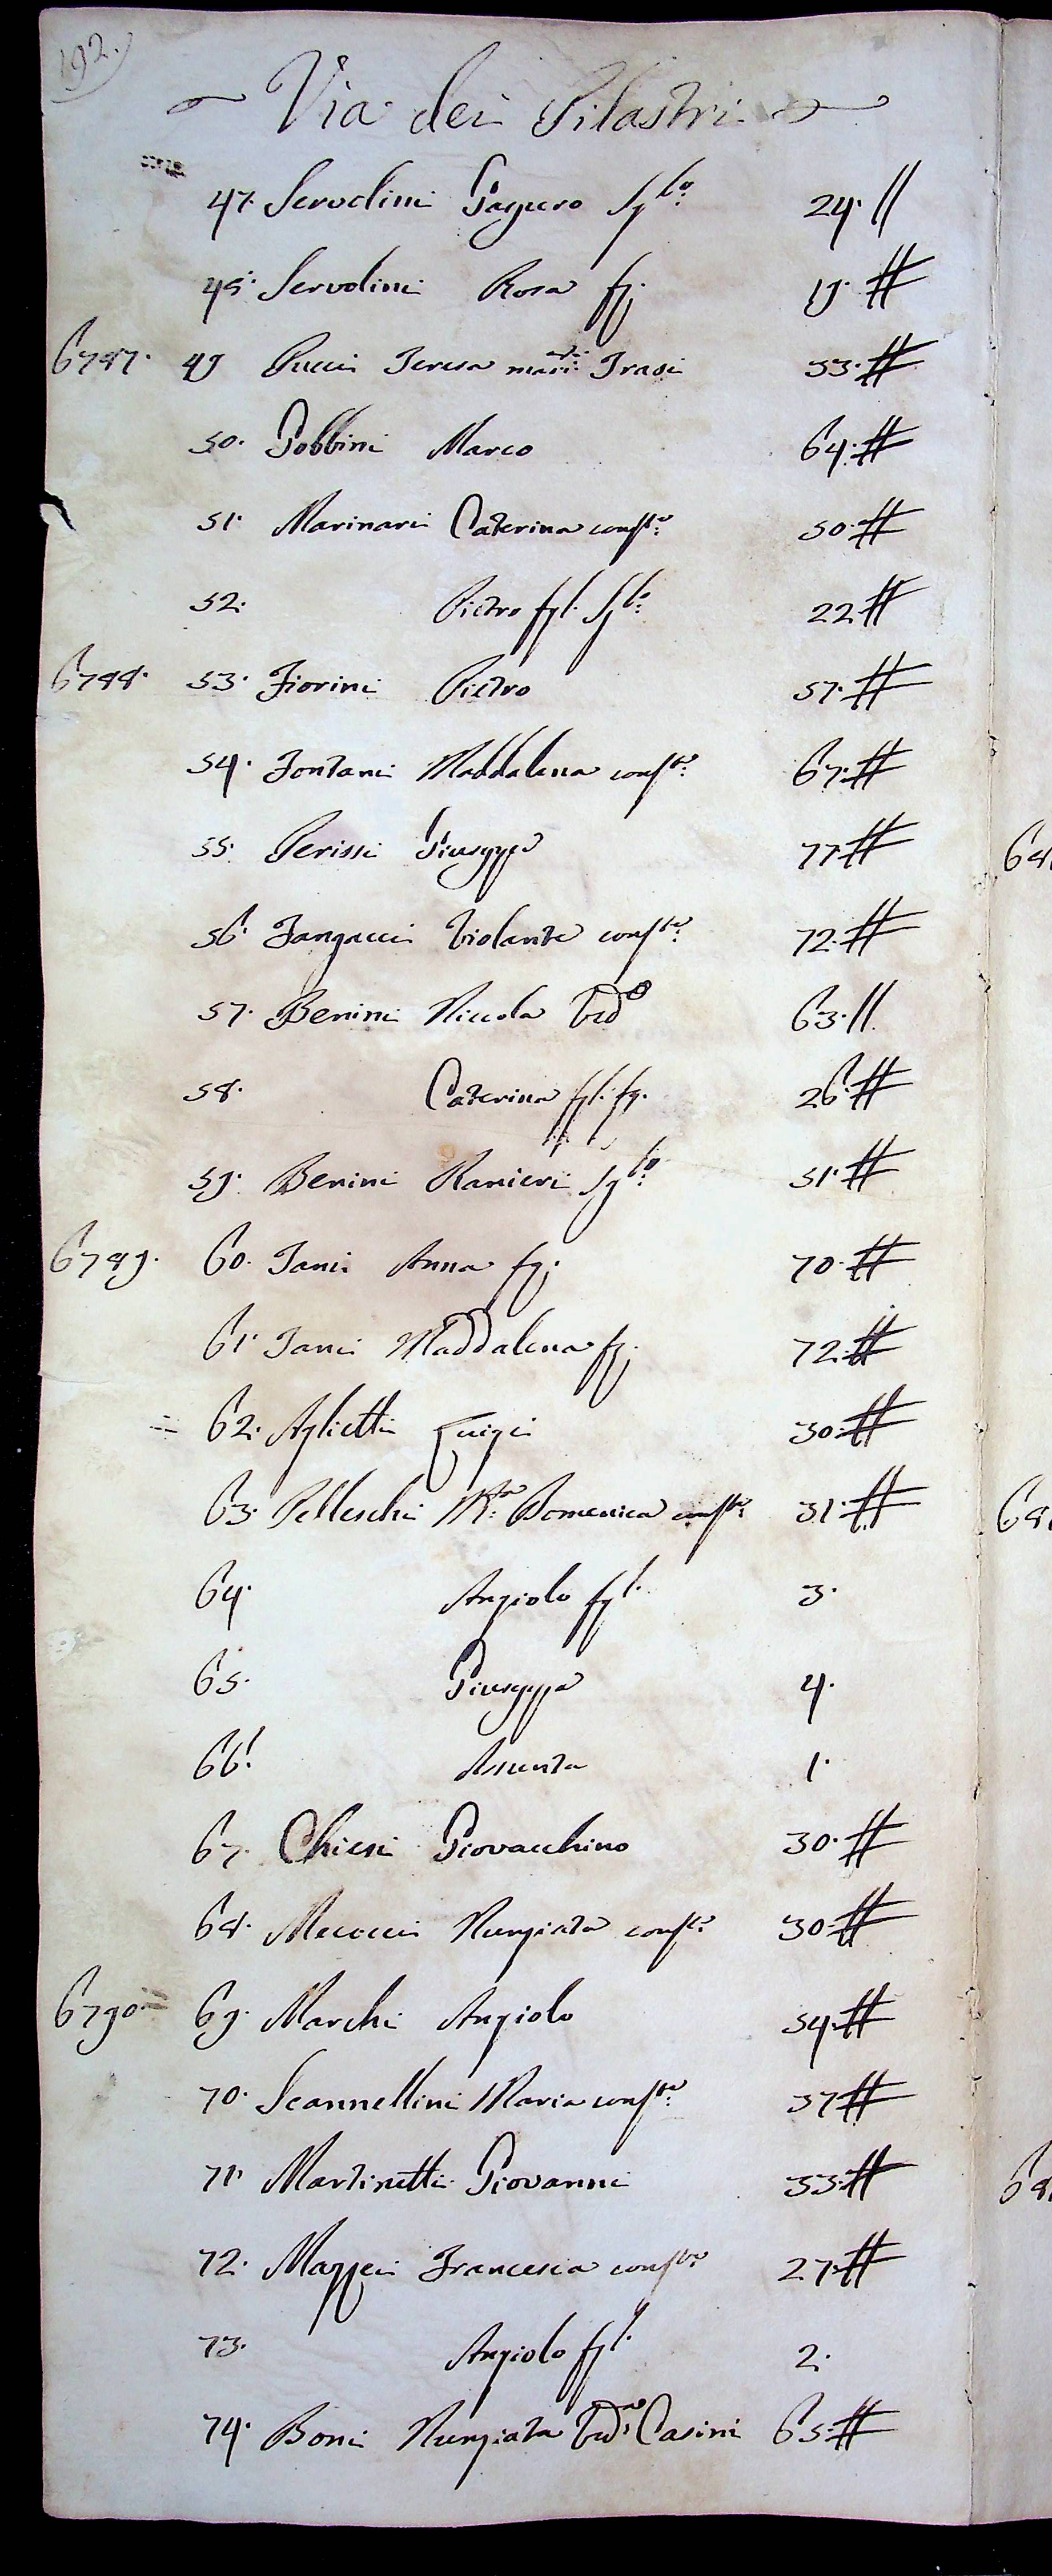 192.
Via dei Pilastri
47. Servolini Gaspero Sglo: 24. //
48. Servolini Rosa fg: 19. #
6787. 49 Pucci Teresa mari: Trasi 53. #
50. Gobbini Marco 64. #
51. Marinari Caterina conste: 50. #
52. Pietro fgl. Sglo: 22 #
6788. 53. Fiorini Pietro 57. #
54. Fontani Maddalena conste: 67. #
55. Perissi Giuseppe 77 #
56. Fangacci Violante conste: 72. #
57. Benini Niccola Vedo 63. //
58. Caterina fgl. fg. 26. #
59. Benini Ranieri Sglo: 51. #
6789. 60. Tani Anna fg: 70. #
61. Tani Maddalena fg: 72. #
62. Aglietti Luigi 30. #
63. Pelleschi Ma: Domenica conste: 31. #
64. Angiolo fgl. 3.
65. Giuseppa 4.
66. Assunta 1.
67. Chiesi Giovacchino 30. #
68. Mecocci Nunziata conste: 30. #
6790. 69. Marchi Angiolo 54. #
70. Scannellini Maria conste: 37 #
71. Martinetti Giovanni 33. #
72. Mazzei Francesca conste: 27. #
73. Angiolo fgl. 2.
74. Boni Nunziata Veda: Casini 65. #